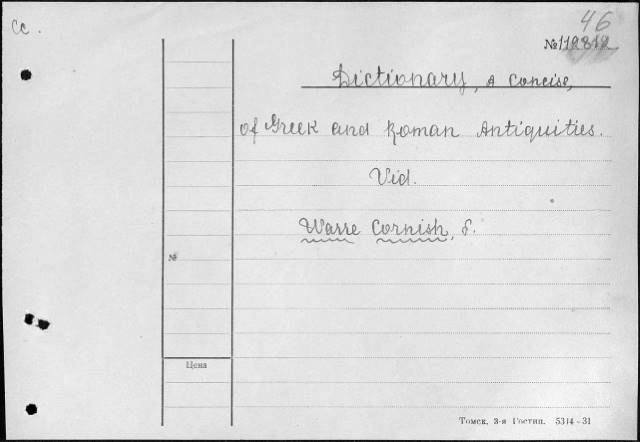 Cc.
46
№112812
Dictionary, A Concise,
of Greek and Roman Antiquities.
Vid.
Warre Cornish, F.
№
Цена
Томск, 3-я Гостип. 5314-31